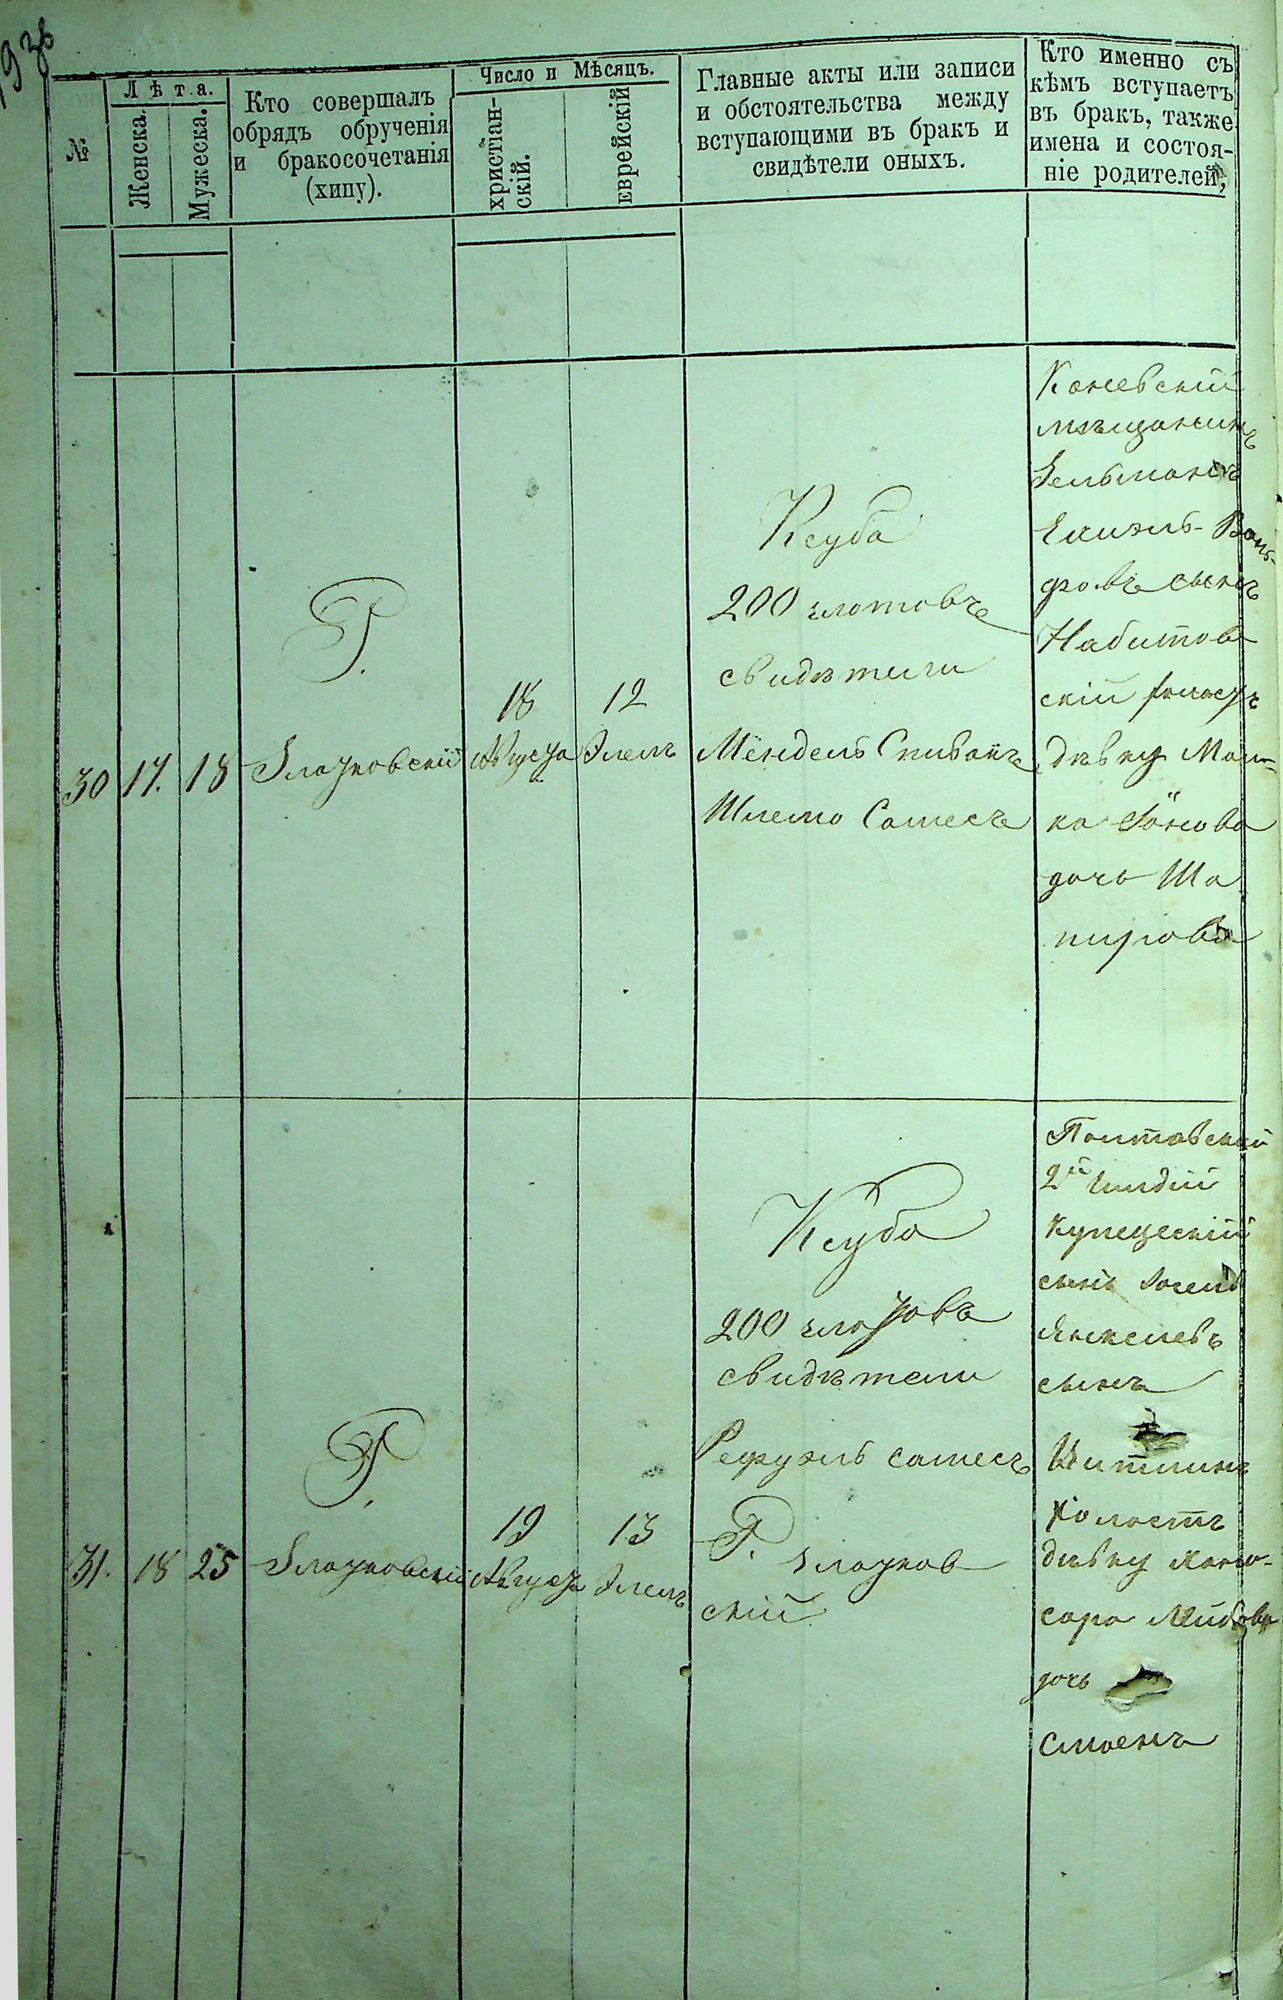 193б
№
Лѣта.
Женска.
Мужеска.
Кто совершалъ
обрядъ обрученія
и бракосочетанія
(хипу).
Число и Мѣсяцъ.
христіан-
скій.
еврейскій
Главные акты или записи
и обстоятельства между
вступающими въ бракъ и
свидѣтели оныхъ.
Кто именно съ
кѣмъ вступаетъ
въ бракъ, также
имена и состоя-
ніе родителей,
30
17.
18
Р.
Златковскій
18
Августа
12
Элелъ
Ксуба
200 злотовъ
свидѣтели
Мендель Спивакъ
Шлемо Самесъ
Каневскій
мѣщанинъ
Вольф
фовъ сынъ
скій холостъ
дѣвку Мал-
ка
дочь Ша
пирова
31.
18
25
Р.
Златковскій
19
Августа
13
Элелъ
Ксуба
200 злотовъ
свидѣтели
Рефуэль самесъ
Р. Златков
скій
Полтавскій
2й гилдіи
Купеческій
сынъ Іосель
Янкелевъ
сынъ
Цитлинъ
Холостъ
дѣвку Хана-
сара Лейбова
дочь
Слоенъ